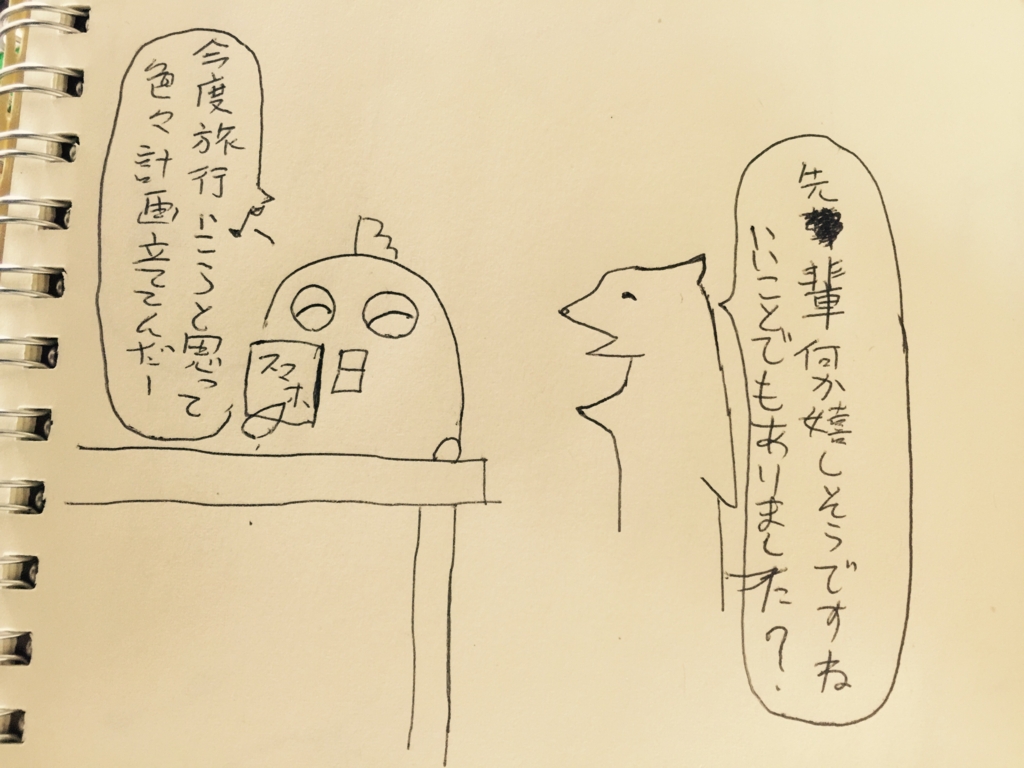 先輩何か嬉しそうですね
いいことでもありました?
今度旅行にいこうと思って
色々計画立ててんだー
スマホ